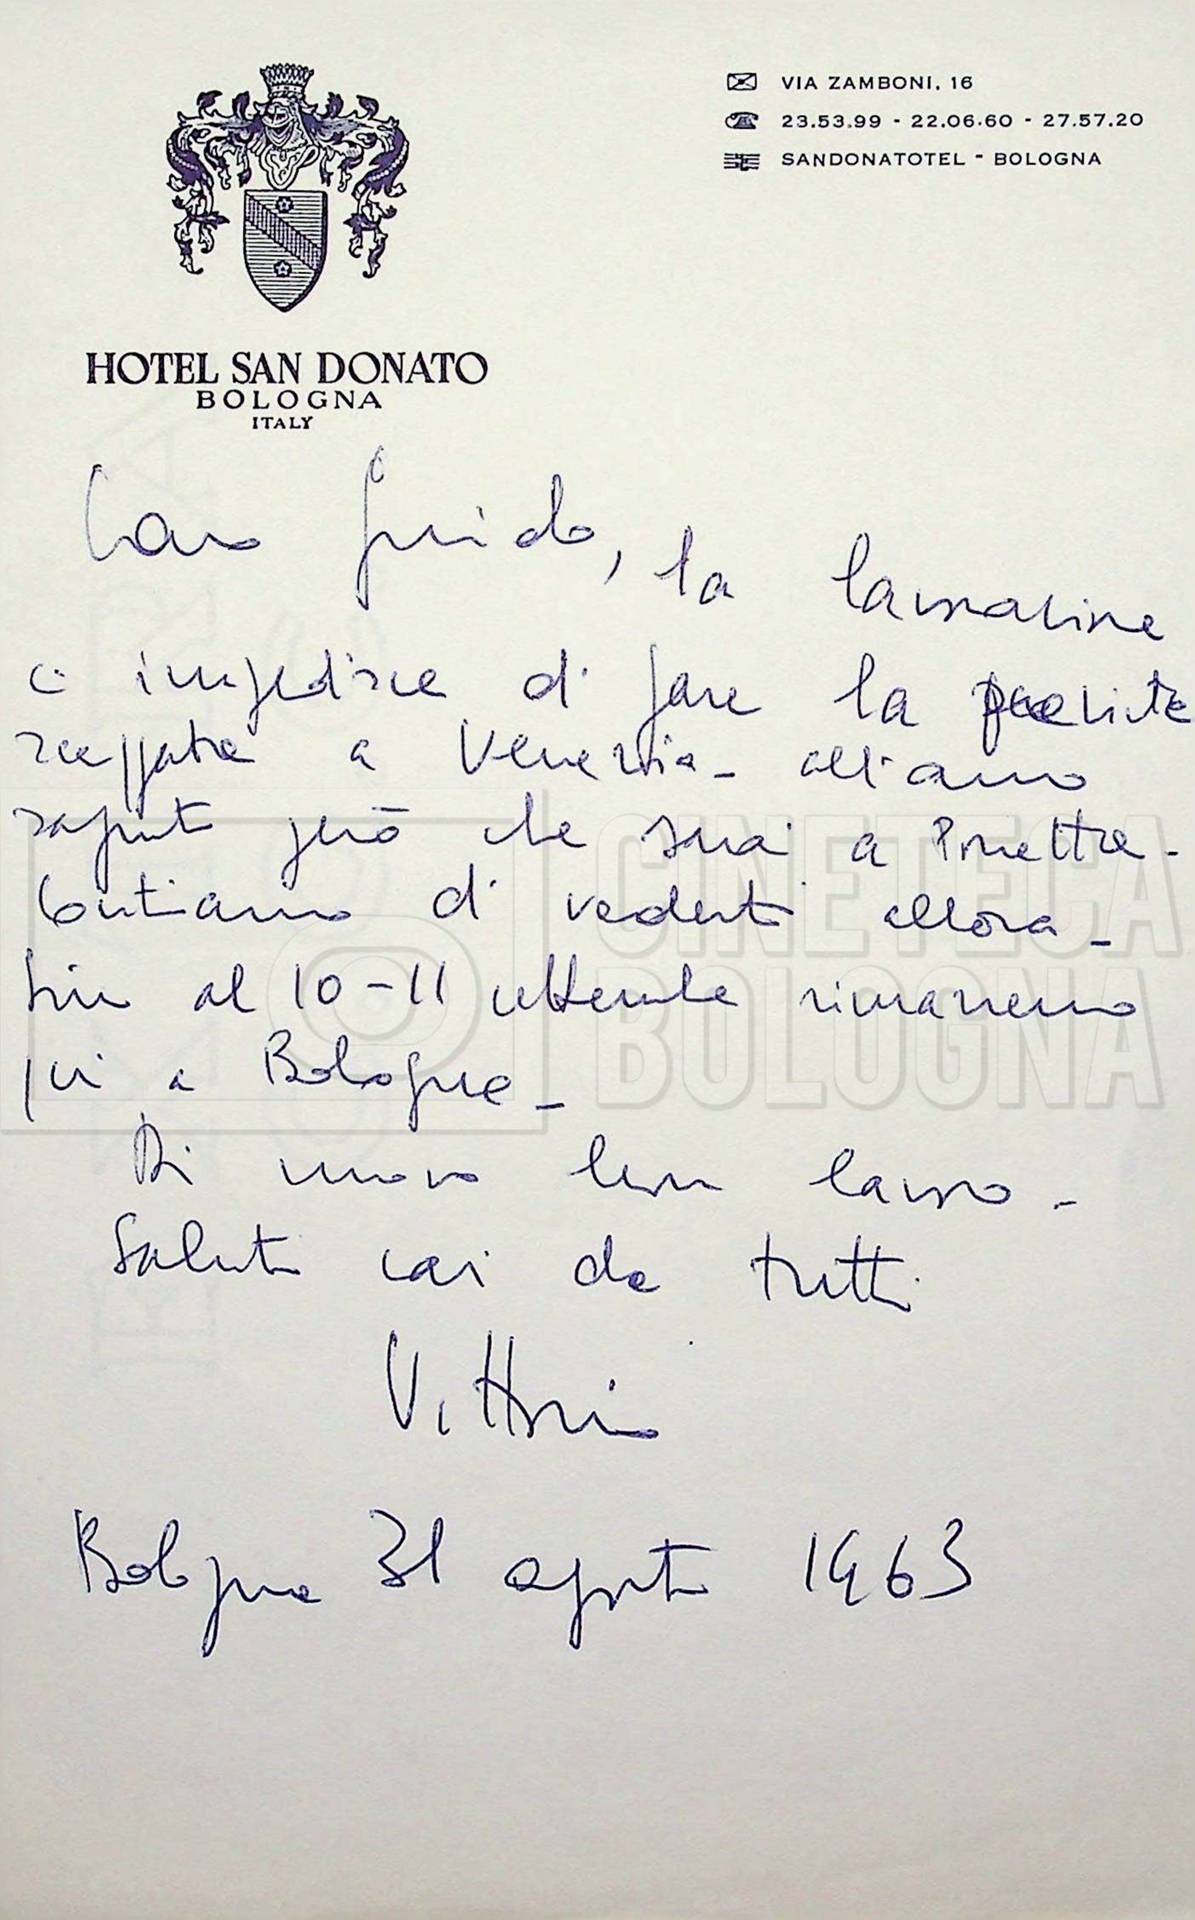 VIA ZAMBONI, 16
23.53.99 - 22.06.60 - 27.57.20
SANDONATOTEL - BOLOGNA
HOTEL SAN DONATO
BOLOGNA
ITALY
Caro Guido, la lavorazione
ci impedisce di fare la prevista
scappata a Venezia - abbiamo
saputo però che sarai a Porretta -
Contiamo di vederti allora -
Fino al 10-11 settembre rimarremo
qui a Bologna -
Di nuovo buon lavoro -
Saluti cari da tutti
Vittorio
Bologna 31 agosto 1963
CINETECA
BOLOGNA